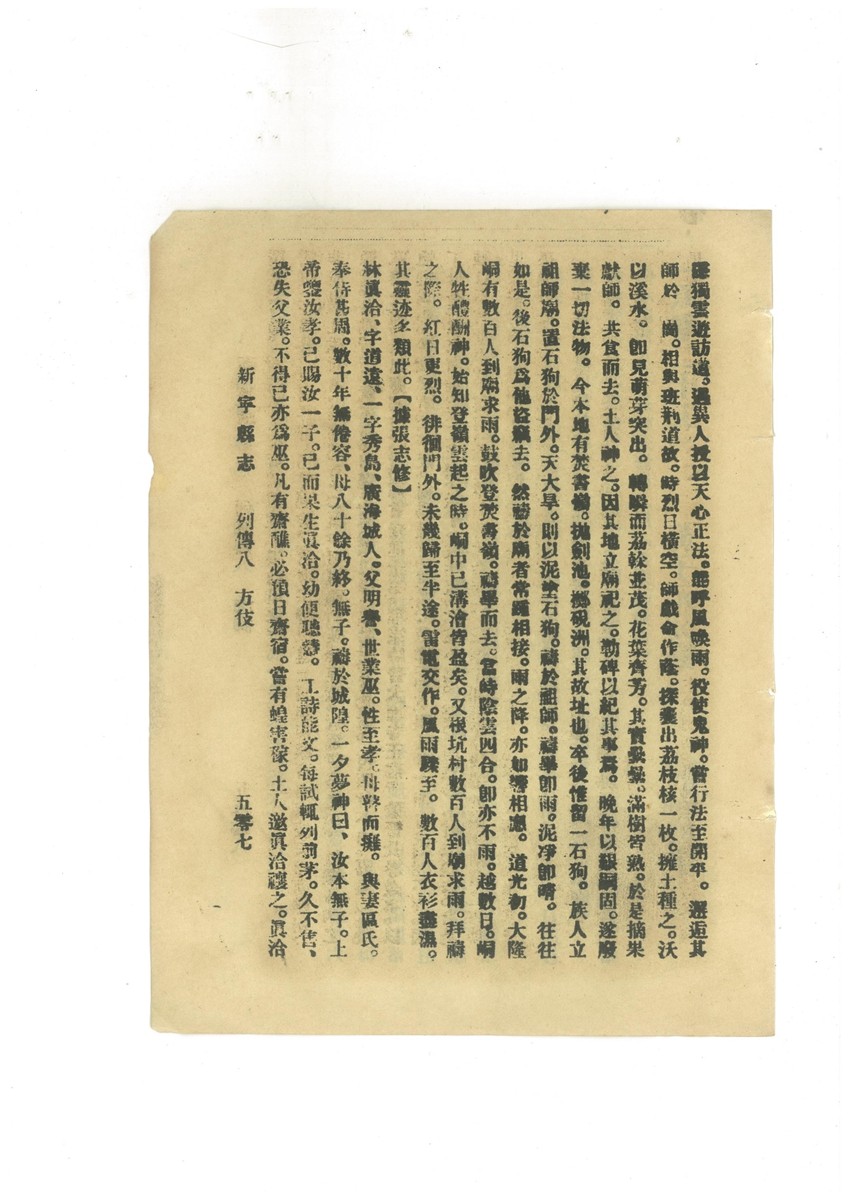 獨雲遊訪道。遇異人授以天心正法。能呼風喚雨。役使鬼神。嘗行法至開平。邂逅其
師於 崗。相與班荆道故。時烈日橫空。師戲命作蔭。探囊出荔枝核一枚。擁土種之。沃
以溪水。卽見萌芽突出。轉瞬而荔榦並茂。花葉齊芳。其實纍纍。滿樹皆熟。於是摘果
獻師。共食而去。土人神之。因其地立廟祀之。勒碑以紀其事焉。晚年以錮固。遂廢
棄一切法物。今本地有焚書嶺。拋劍池。擲硯洲。其故址也。卒後惟留一石狗。族人立
祖師廟。置石狗於門外。天大旱。則以泥塗石狗。禱於祖師。禱畢卽雨。泥凈卽晴。往往
如是。後石狗爲他盜竊去。然禱於廟者常踵相接。雨之降。亦如響相應。道光初。大隆
峒有數百人到廟求雨。鼓吹登焚書嶺。禱畢而去。當時陰雲四合。卽亦不雨。越數日。峒
人牲醴酬神。始知登嶺雲起之時。峒中已溝澮皆盈矣。又坑村數百人到廟求雨。拜禱
之際。紅日更烈。徘徊門外。未幾歸至半途。雷電交作。風雨驟至。數百人衣衫盡濕。
其靈迹多類此。【據張志修】
林眞洽、字道遠、一字秀島、廣海城人。父明譽、世業巫。性至孝。母瞽而癱。與妻區氏。
奉侍甚周。數十年無倦容、母八十餘乃終。無子。禱於城隍。一夕夢神曰、汝本無子。上
帝鑒汝孝。已賜汝一子。已而果生眞洽。幼便聰慧。工詩能文。每試輒列前茅。久不售、
恐失父業。不得已亦爲巫。凡有齋醮。必預日齋宿。嘗有蝗害稼。土人邀眞洽禳之。眞洽
新寧縣志 列傳八 方伎 五零七